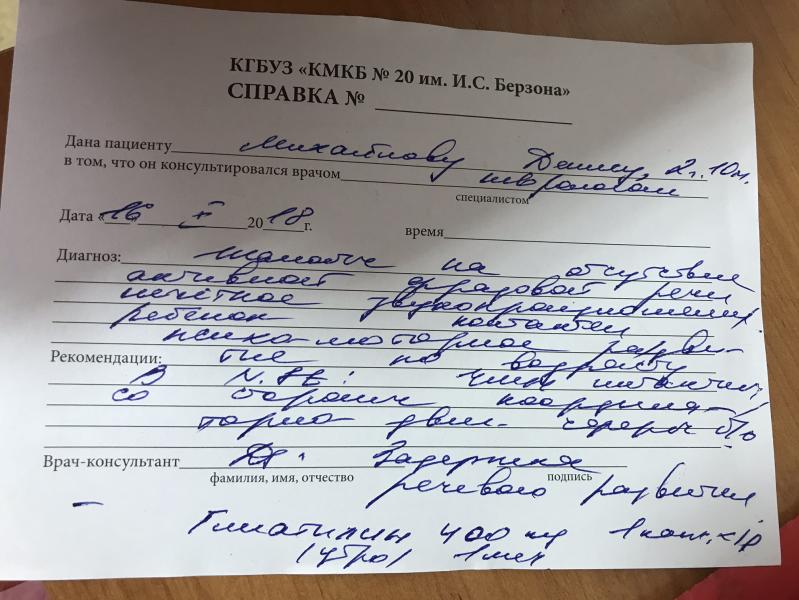 КГБУЗ «КМКБ № 20 им. И.С. Берзона»
СПРАВКА №
Дана пациенту Михайлову Денису, 2г. 10м.
в том, что он консультировался врачом неврологом
специалистом
Дата «16» II 2018 г. время
Диагноз: жалобы на отсутствие
активной фразовой речи
нечёткое звукопроизношение.
ребёнок контактен
психо-моторное разви-
Рекомендации: тие по возрасту
В N.St: ЧМН интактны,
со стороны координа-
торно двиг. сферы б/о
Врач-консультант Ds: Задержка
фамилия, имя, отчество подпись
речевого развития
Глиатилин 400 мг 1 капс. х 1р
(утро) 1 мес